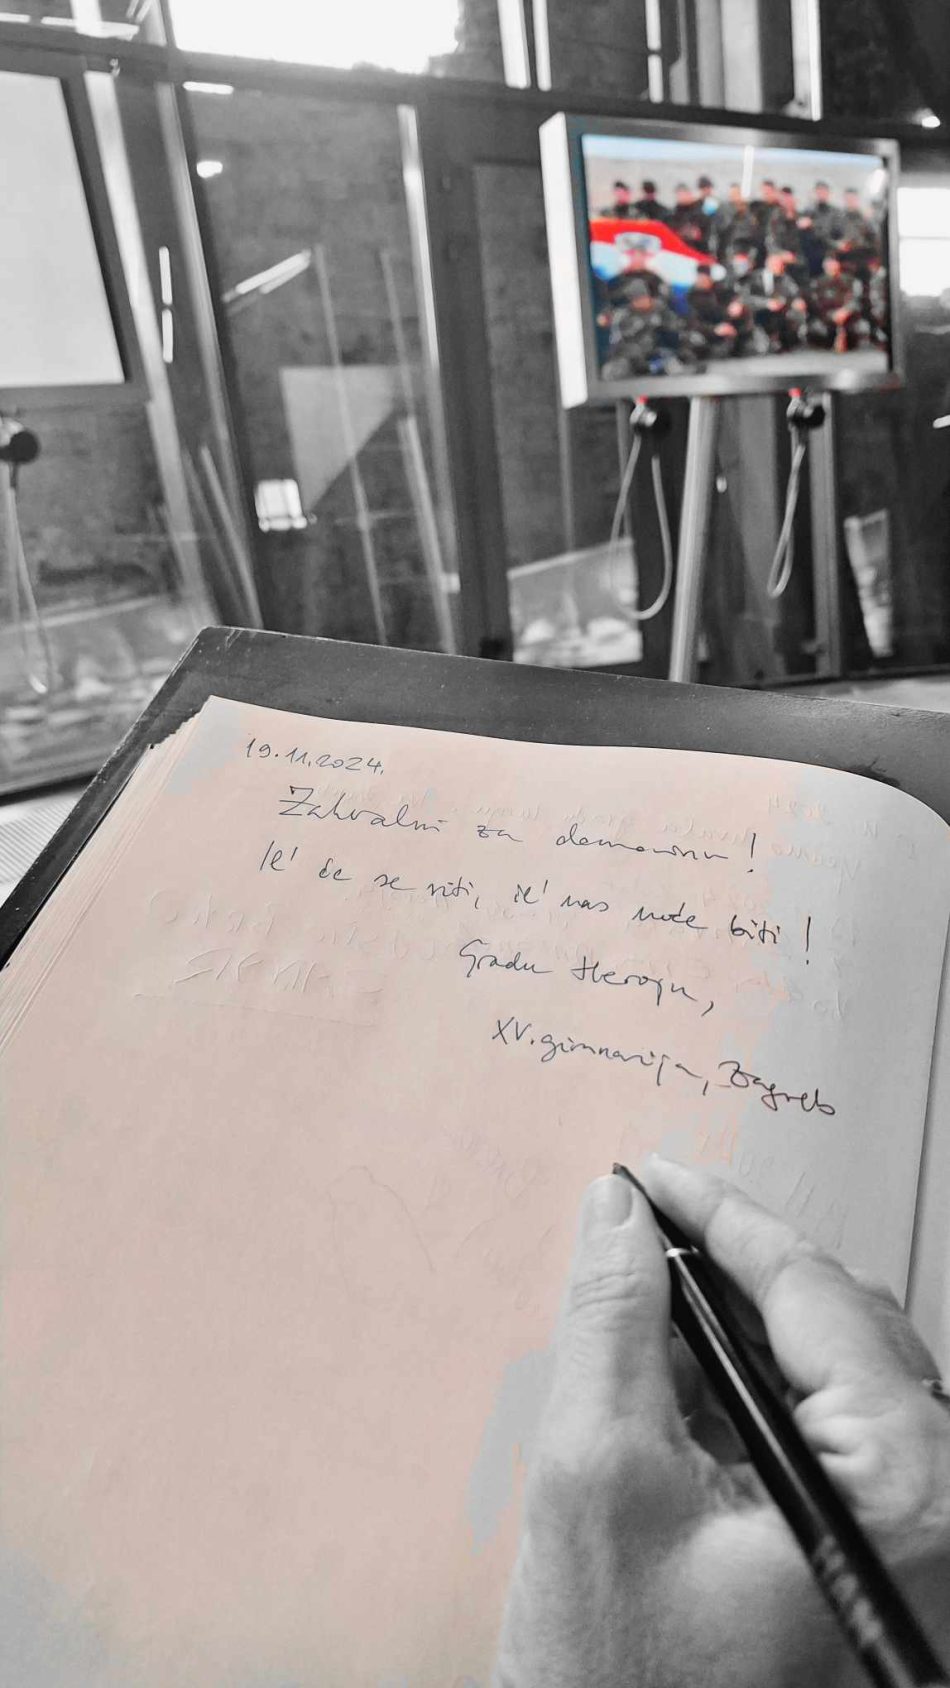 19.11.2024.
Zahvalni za domovinu!
Ić će se riti, ić nas neće biti!
Gradu Heroju,
XV. gimnazija, Zagreb